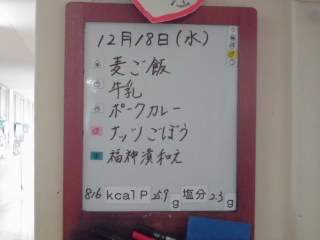 12月18日(水)
麦ご飯
牛乳
ポークカレー
ナッツごぼう
福神漬和え
816 kcal P 25.9 g 塩分 2.3 g